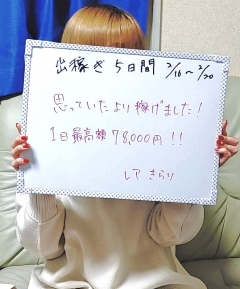 出稼ぎ 5日間 2/16～2/20
思っていたより稼げました！
1日最高額 78,000円！！
レア きらり